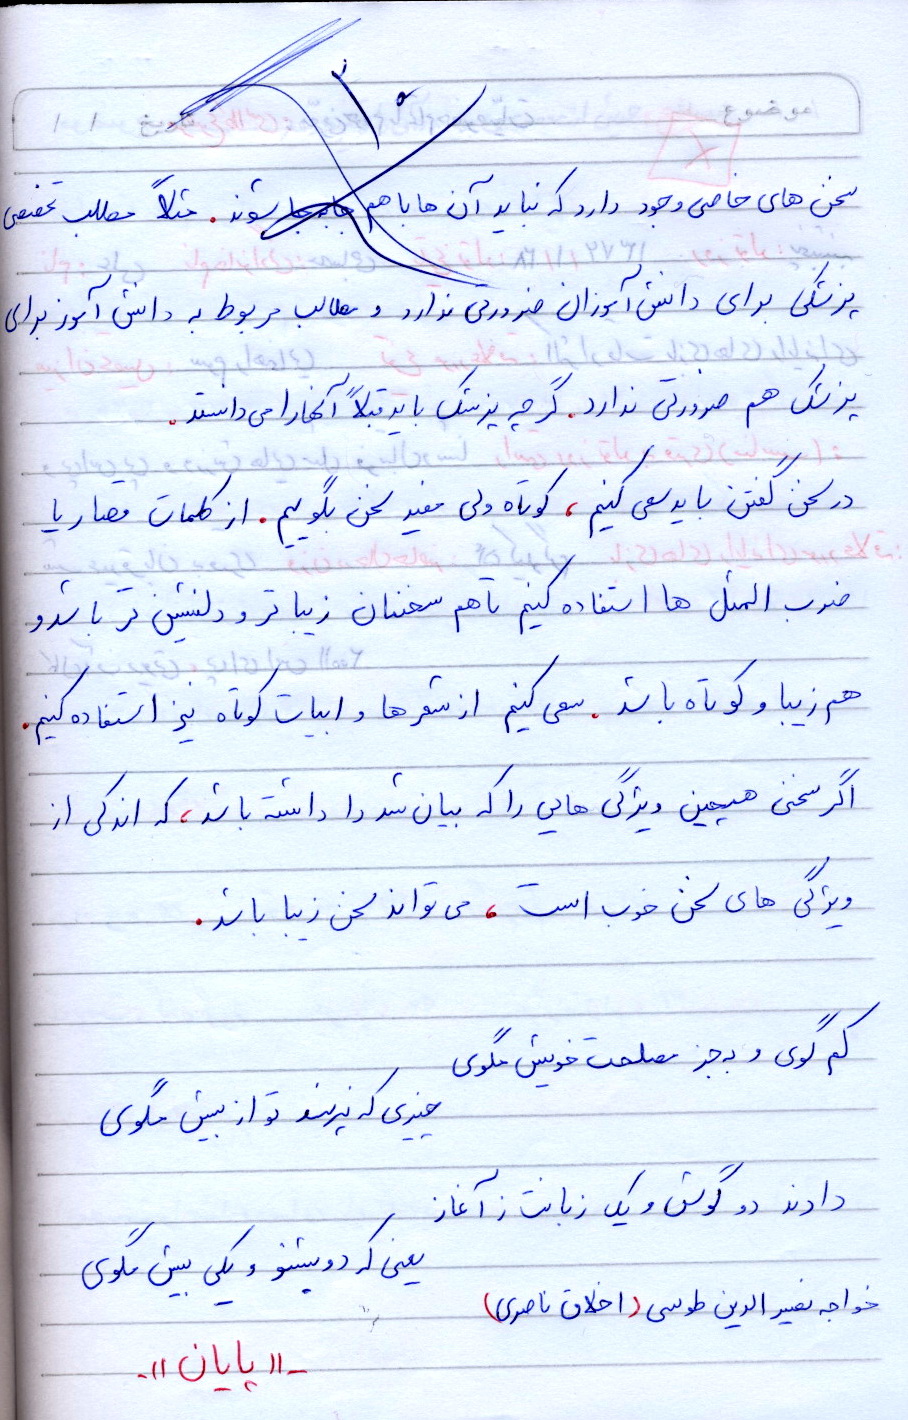 موضوع
تاریخ / /
۲۰
سخن های خاصی وجود دارد که نباید آن ها با هم جابه‌جا شوند. مثلاً مطالب تخصصی
پزشکی برای دانش آموزان ضرورتی ندارد و مطالب مربوط به دانش آموز برای
پزشک هم ضرورتی ندارد. گرچه پزشک باید قبلاً آنها را می دانستد.
در سخن گفتن باید سعی کنیم، کوتاه ولی مفید سخن بگوییم. از کلمات قصار یا
ضرب المثل ها استفاده کنیم تا هم سخنان زیبا تر و دلنشین تر باشد و
هم زیبا و کوتاه باشد. سعی کنیم از شعرها و ابیات کوتاه نیز استفاده کنیم.
اگر سخنی همچین ویژگی هایی را که بیان شد را داشته باشد، که اندکی از
ویژگی های سخن خوب است، می تواند سخن زیبا باشد.
کم گوی و به جز مصلحت خویش مگوی
چیزی که نپرسند تو از پیش مگوی
دادند دو گوش و یک زبانت ز آغاز
یعنی که دو بشنو و یکی بیش مگوی
خواجه نصیر الدین طوسی (اخلاق ناصری)
-" پایان "-